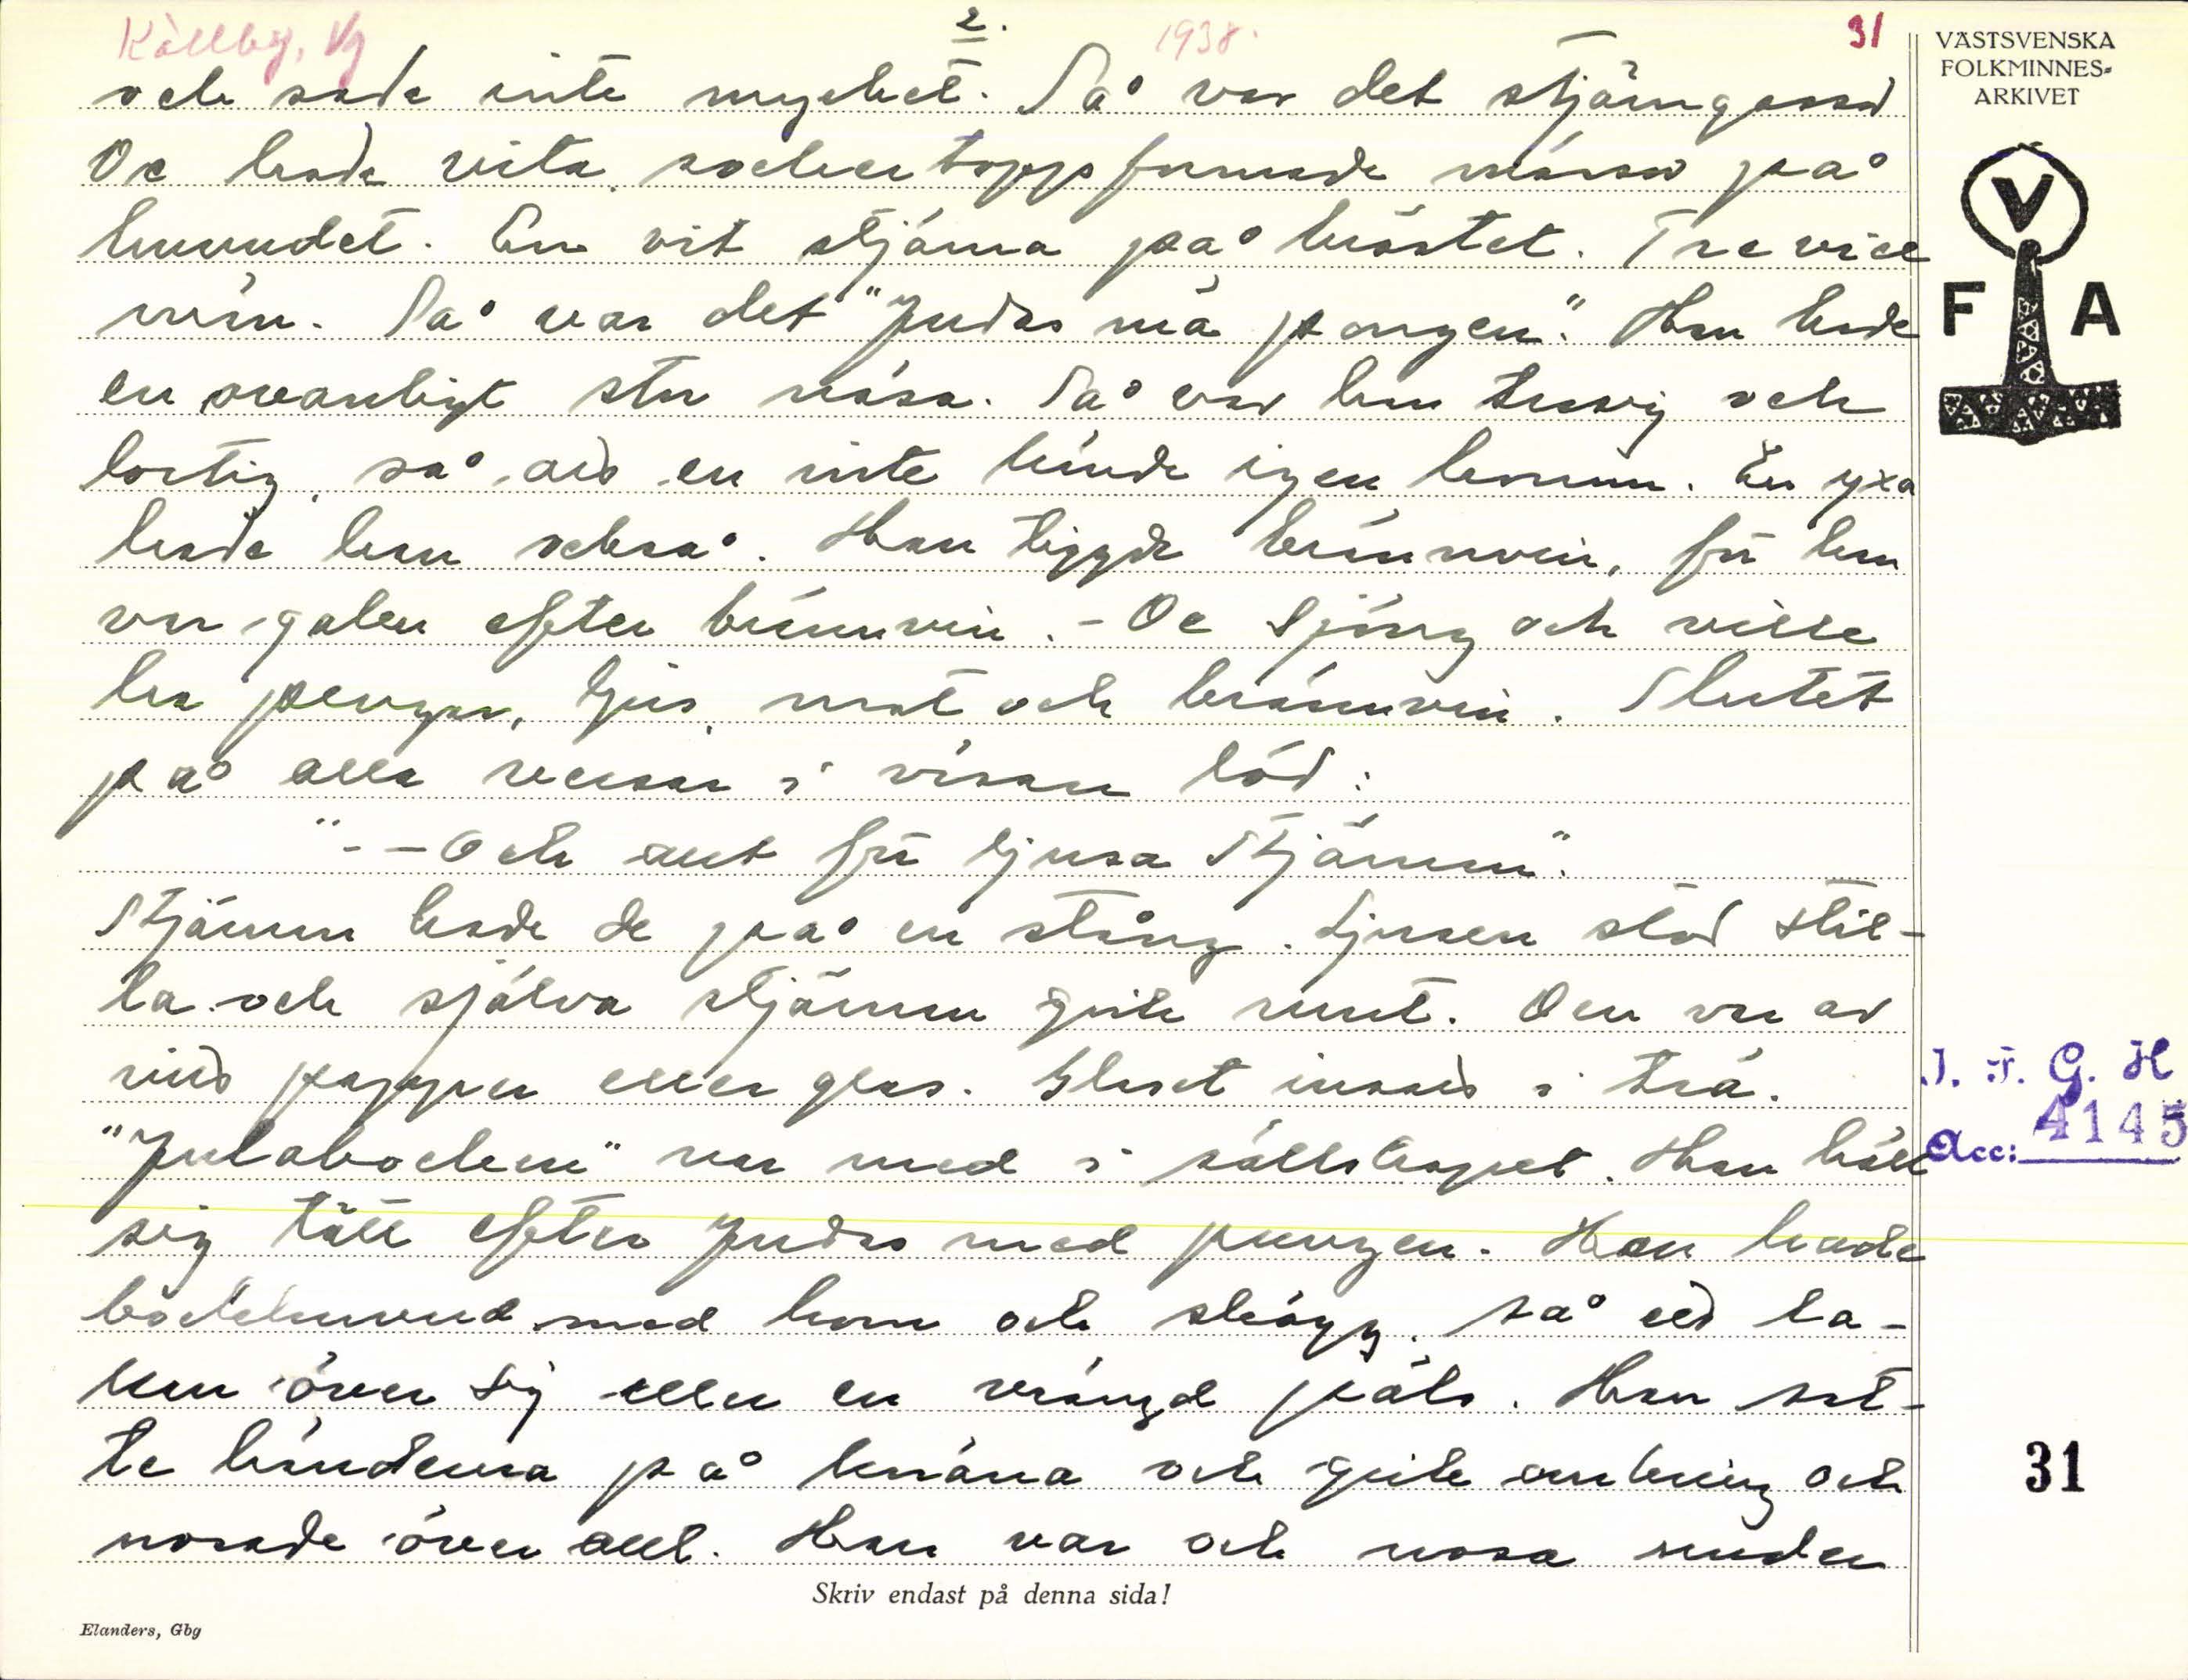 Källby, Vg
2.
1938.
31
VÄSTSVENSKA
FOLKMINNES-
ARKIVET
och sade inte mycket. Så var det stjärngossar
De hade vita sockertoppsformade mössor på
huvudet. En vit stjärna på bröstet. Tre vise
män. Så var det "Judas mä pongen". Han hade
en ovanligt stor näsa. Så var han trasig och
lortig, så att en inte kände igen honom. En yxa
hade han också. Han tiggde brännvin, för han
var galen efter brännvin. - De sjöng och ville
ha pengar, ljus, mat och brännvin. Slutet
på alla verser i visan löd:
"- - Och allt för ljusa Stjärnan".
Stjärnan hade de på en stång. Ljusen stod stil-
la och själva stjärnan gick runt. Den var av
papper eller glas. Glaset insatt i trä.
"Julabocken" var med i sällskapet. Han höll
sig tätt efter Judas med pungen. Han hade
bockhuvud med horn och skägg. Så ett la-
kan över sig eller en vrängd päls. Han sat-
te händerna på knäna och gick omkring och
nosade över allt. Han var och nosa under
V
F A
I. F. G. H
Acc: 4145
31
Skriv endast på denna sida!
Elanders, Gbg